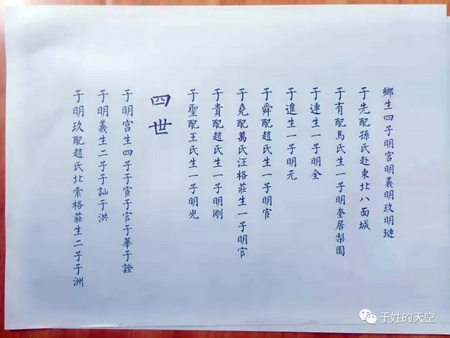 鄉生四子明宮明義明玖明璉
于先配孫氏赴東北八面城
于有配馬氏生一子明奎居梨園
于連生一子明全
于進生一子明元
于舜配趙氏生一子明官
于堯配萬氏汪格莊生一子明官
于貴配趙氏生一子明剛
于聖配王氏生一子明光
四世
于明宮生四子于宣于官于華于詮
于明義生二子于訕于洪
于明玖配趙氏北索格莊生二子于洲
于姓的天空